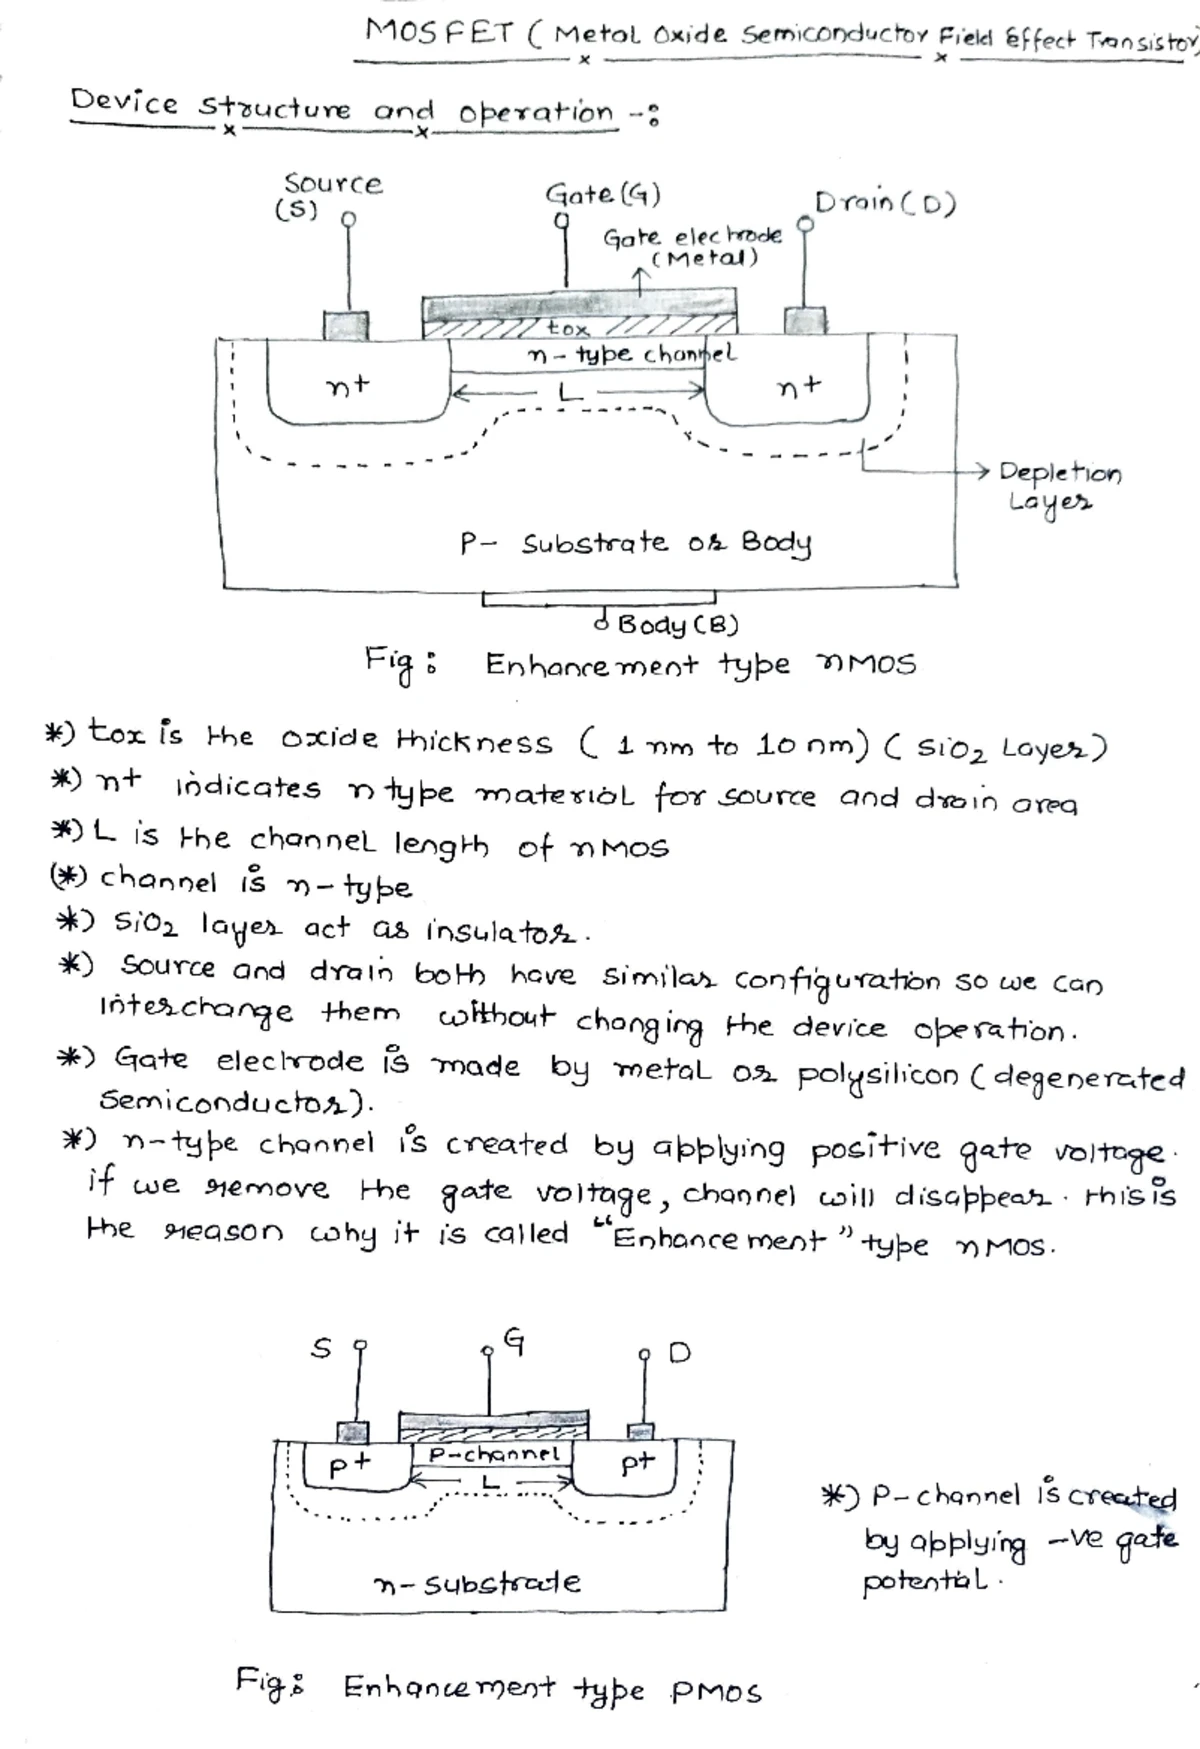 MOSFET ( Metal Oxide Semiconductor Field Effect Transistor)
Device structure and operation -:
Source
(S)
Gate (G)
Drain ( D )
Gate electrode
(Metal)
tox
n - type channel
n+
L
n+
Depletion
Layer
P- Substrate or Body
Body (B)
Fig : Enhancement type nMOS
*) tox is the oxide thickness ( 1 nm to 10 nm) ( SiO2 Layer)
*) n+ indicates n type material for source and drain area
*) L is the channel length of nMOS
(*) channel is n-type
*) SiO2 layer act as insulator.
*) Source and drain both have similar configuration so we can
interchange them without changing the device operation.
*) Gate electrode is made by metal or polysilicon ( degenerated
Semiconductor).
*) n-type channel is created by applying positive gate voltage.
if we remove the gate voltage, channel will disappear. this is
the reason why it is called "Enhancement" type nMOS.
S
G
D
P+
P-channel
P+
L
n-substrate
*) P-channel is created
by applying -ve gate
potential.
Fig: Enhancement type PMOS